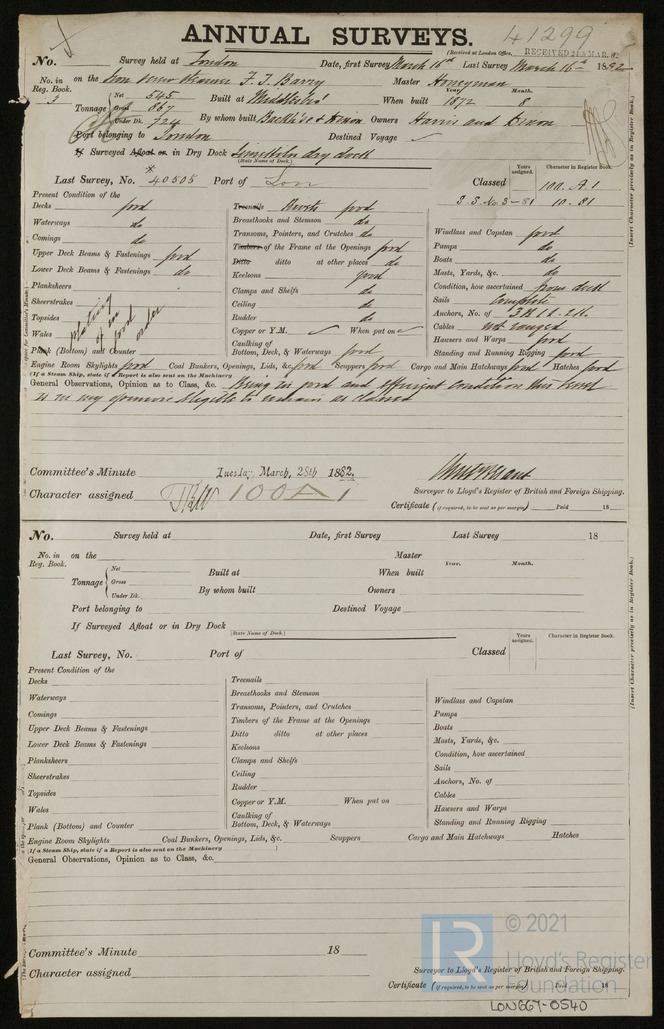 41299
ANNUAL SURVEYS.
(Received at London Office, RECEIVED 21 MAR. 82
No. Survey held at London Date, first Survey March 16th Last Survey March 16th 1882
No. in Reg. Book. 3 on the Iron Screw Steamer F. T. Barry Master Honeyman
Tonnage Net 545 Built at Middlesbro' When built Year. 1872 Month. 8
Gross 867
Under Dk. 724 By whom built Backhouse & Dixon Owners Harris and Dixon
Port belonging to London Destined Voyage ✓
If Surveyed Afloat or in Dry Dock Limekiln dry dock
(State Name of Dock.)
Last Survey, No. 40505 Port of Lon Classed
Years assigned. Character in Register Book.
100.A.1
S.S. No. 3-81 10.81
(Insert Character precisely as in Register Book.)
Present Condition of the
Decks good
Waterways do
Comings do
Upper Deck Beams & Fastenings good
Lower Deck Beams & Fastenings do
Planksheers
Sheerstrakes
Topsides
Wales
Plank (Bottom) and Counter
plating in good order
Treenails Rivets good
Breasthooks and Stemson do
Transoms, Pointers, and Crutches do
Timbers of the Frame at the Openings good
Ditto ditto at other places do
Keelsons good
Clamps and Shelfs do
Ceiling do
Rudder do
Copper or Y.M. ✓ When put on ✓
Caulking of
Bottom, Deck, & Waterways good
Windlass and Capstan good
Pumps do
Boats do
Masts, Yards, &c. do
Condition, how ascertained from deck
Sails Complete
Anchors, No. of 3 B 1 S. 2 K.
Cables not ranged
Hawsers and Warps good
Standing and Running Rigging good
Engine Room Skylights good Coal Bunkers, Openings, Lids, &c. good Scuppers good Cargo and Main Hatchways good Hatches good
(If a Steam Ship, state if a Report is also sent on the Machinery
General Observations, Opinion as to Class, &c. Being in good and efficient condition this Vessel
is in my opinion eligible to remain as classed
Committee's Minute Tuesday, March, 28th 1882.
Character assigned 100A1
Surveyor to Lloyd's Register of British and Foreign Shipping.
Certificate (if required, to be sent as per margin) Paid 18
No. Survey held at Date, first Survey Last Survey 18
No. in Reg. Book. on the Master
Tonnage Net Built at When built Year. Month.
Gross
Under Dk. By whom built Owners
Port belonging to Destined Voyage
If Surveyed Afloat or in Dry Dock
(State Name of Dock.)
Last Survey, No. Port of Classed
Years assigned. Character in Register Book.
(Insert Character precisely as in Register Book.)
Present Condition of the
Decks
Waterways
Comings
Upper Deck Beams & Fastenings
Lower Deck Beams & Fastenings
Planksheers
Sheerstrakes
Topsides
Wales
Plank (Bottom) and Counter
Treenails
Breasthooks and Stemson
Transoms, Pointers, and Crutches
Timbers of the Frame at the Openings
Ditto ditto at other places
Keelsons
Clamps and Shelfs
Ceiling
Rudder
Copper or Y.M. When put on
Caulking of
Bottom, Deck, & Waterways
Windlass and Capstan
Pumps
Boats
Masts, Yards, &c.
Condition, how ascertained
Sails
Anchors, No. of
Cables
Hawsers and Warps
Standing and Running Rigging
Engine Room Skylights Coal Bunkers, Openings, Lids, &c. Scuppers Cargo and Main Hatchways Hatches
(If a Steam Ship, state if a Report is also sent on the Machinery
General Observations, Opinion as to Class, &c.
LR
© 2021
Lloyd's Register
Foundation
Committee's Minute 18
Character assigned
Surveyor to Lloyd's Register of British and Foreign Shipping.
Certificate (if required, to be sent as per margin) Paid 18
LON667-0540